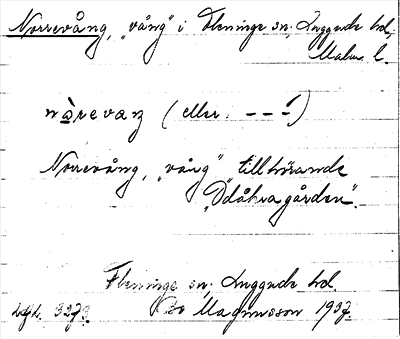 Norrevång, "vång" i Fleninge sn, Luggude hd,
Malm. l.
nòrevaŋ (eller. – – –́)
Norrevång, "vång" tillhörande
"Ödåkragården".
Fleninge sn, Luggude hd
Bo Magnusson 1937.